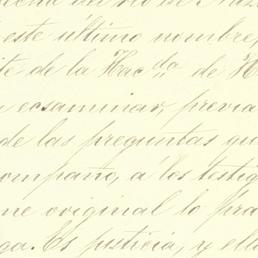 este último nombre,
de la Hacda. de
ecsaminar, previa
de las preguntas que
compaño, á los testig
me original lo pra
ga. Es justicia, y ell